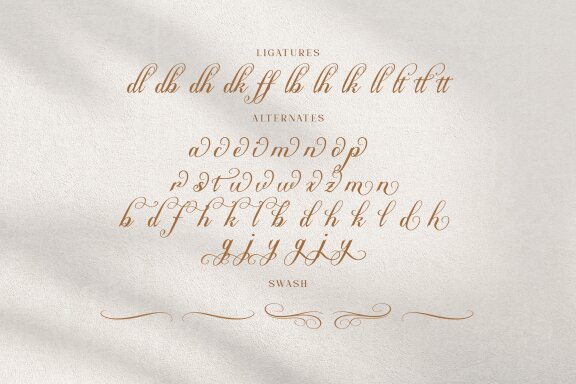 LIGATURES
dl db dh dk ff lb lh lk ll lt tt tt
ALTERNATES
a c e i m n o p
r s t u v w x z m n
b d f h k l b d h k l d h
g j y g j y
SWASH